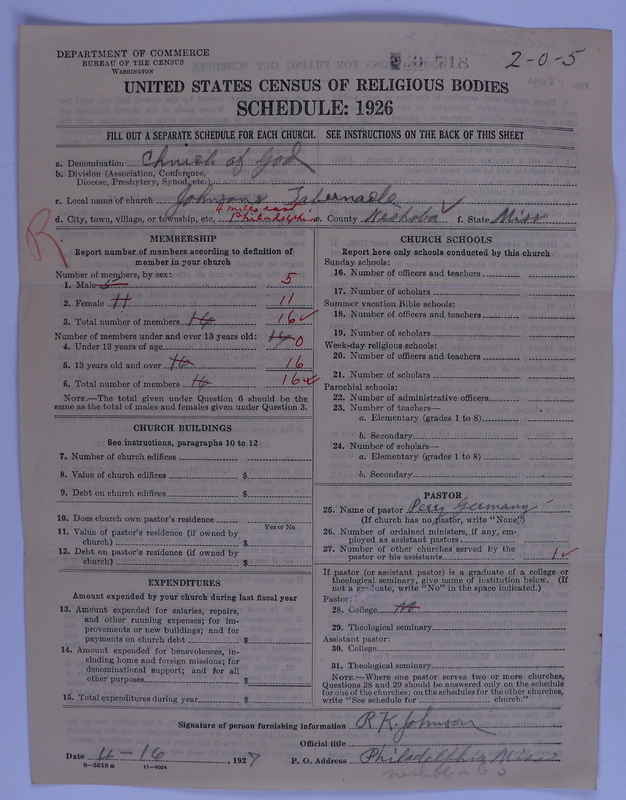 DEPARTMENT OF COMMERCE
BUREAU OF THE CENSUS
WASHINGTON
2-0-5
UNITED STATES CENSUS OF RELIGIOUS BODIES
SCHEDULE: 1926
FILL OUT A SEPARATE SCHEDULE FOR EACH CHURCH. SEE INSTRUCTIONS ON THE BACK OF THIS SHEET
a. Denomination Church of God
b. Division (Association, Conference, Diocese, Presbytery, Synod, etc.)
c. Local name of church Johnsons Tabernacle
4 miles east
d. City, town, village, or township, etc. Philadelphia e. County Neshoba f. State Miss
R
MEMBERSHIP
Report number of members according to definition of
member in your church
Number of members, by sex:
1. Male 5 5
2. Female 11 11
3. Total number of members 16 16
Number of members under and over 13 years old:
4. Under 13 years of age 0
5. 13 years old and over 16 16
6. Total number of members 16 16
NOTE.—The total given under Question 6 should be
same as the total of males and females given under Question 3.
CHURCH BUILDINGS
See instructions, paragraphs 10 to 12
7. Number of church edifices
8. Value of church edifices $
9. Debt on church edifices $
10. Does church own pastor's residence
Yes or No
11. Value of pastor's residence (if owned by
church) $
12. Debt on pastor's residence (if owned by
church) $
EXPENDITURES
Amount expended by your church during last fiscal year
13. Amount expended for salaries, repairs,
and other running expenses; for im-
provements or new buildings; and for
payments on church debt $
14. Amount expended for benevolences, in-
cluding home and foreign missions; for
denominational support; and for all
other purposes $
15. Total expenditures during year $
CHURCH SCHOOLS
Report here only schools conducted by this church
Sunday schools:
16. Number of officers and teachers
17. Number of scholars
Summer vacation Bible schools:
18. Number of officers and teachers
19. Number of scholars
Week-day religious schools:
20. Number of officers and teachers
21. Number of scholars
Parochial schools:
22. Number of administrative officers
23. Number of teachers—
a. Elementary (grades 1 to 8)
b. Secondary
24. Number of scholars—
a. Elementary (grades 1 to 8)
b. Secondary
PASTOR
25. Name of pastor Perry Germany
(If church has no pastor, write "None")
26. Number of ordained ministers, if any, em-
ployed as assistant pastors
27. Number of other churches served by the
pastor or his assistants 1
If pastor (or assistant pastor) is a graduate of a college or
theological seminary, give name of institution below. (If
not a graduate, write "No" in the space indicated.)
Pastor:
28. College No
29. Theological seminary
Assistant pastor:
30. College
31. Theological seminary
NOTE.—Where one pastor serves two or more churches,
Questions 28 and 29 should be answered only on the schedule
for one of the churches; on the schedules for the other churches,
write "See schedule for church."
Signature of person furnishing information R K Johnson
Official title
Date 4-16, 1927 P. O. Address Philadelphia Miss
8-5518 a 11-9054
Neshoba Co